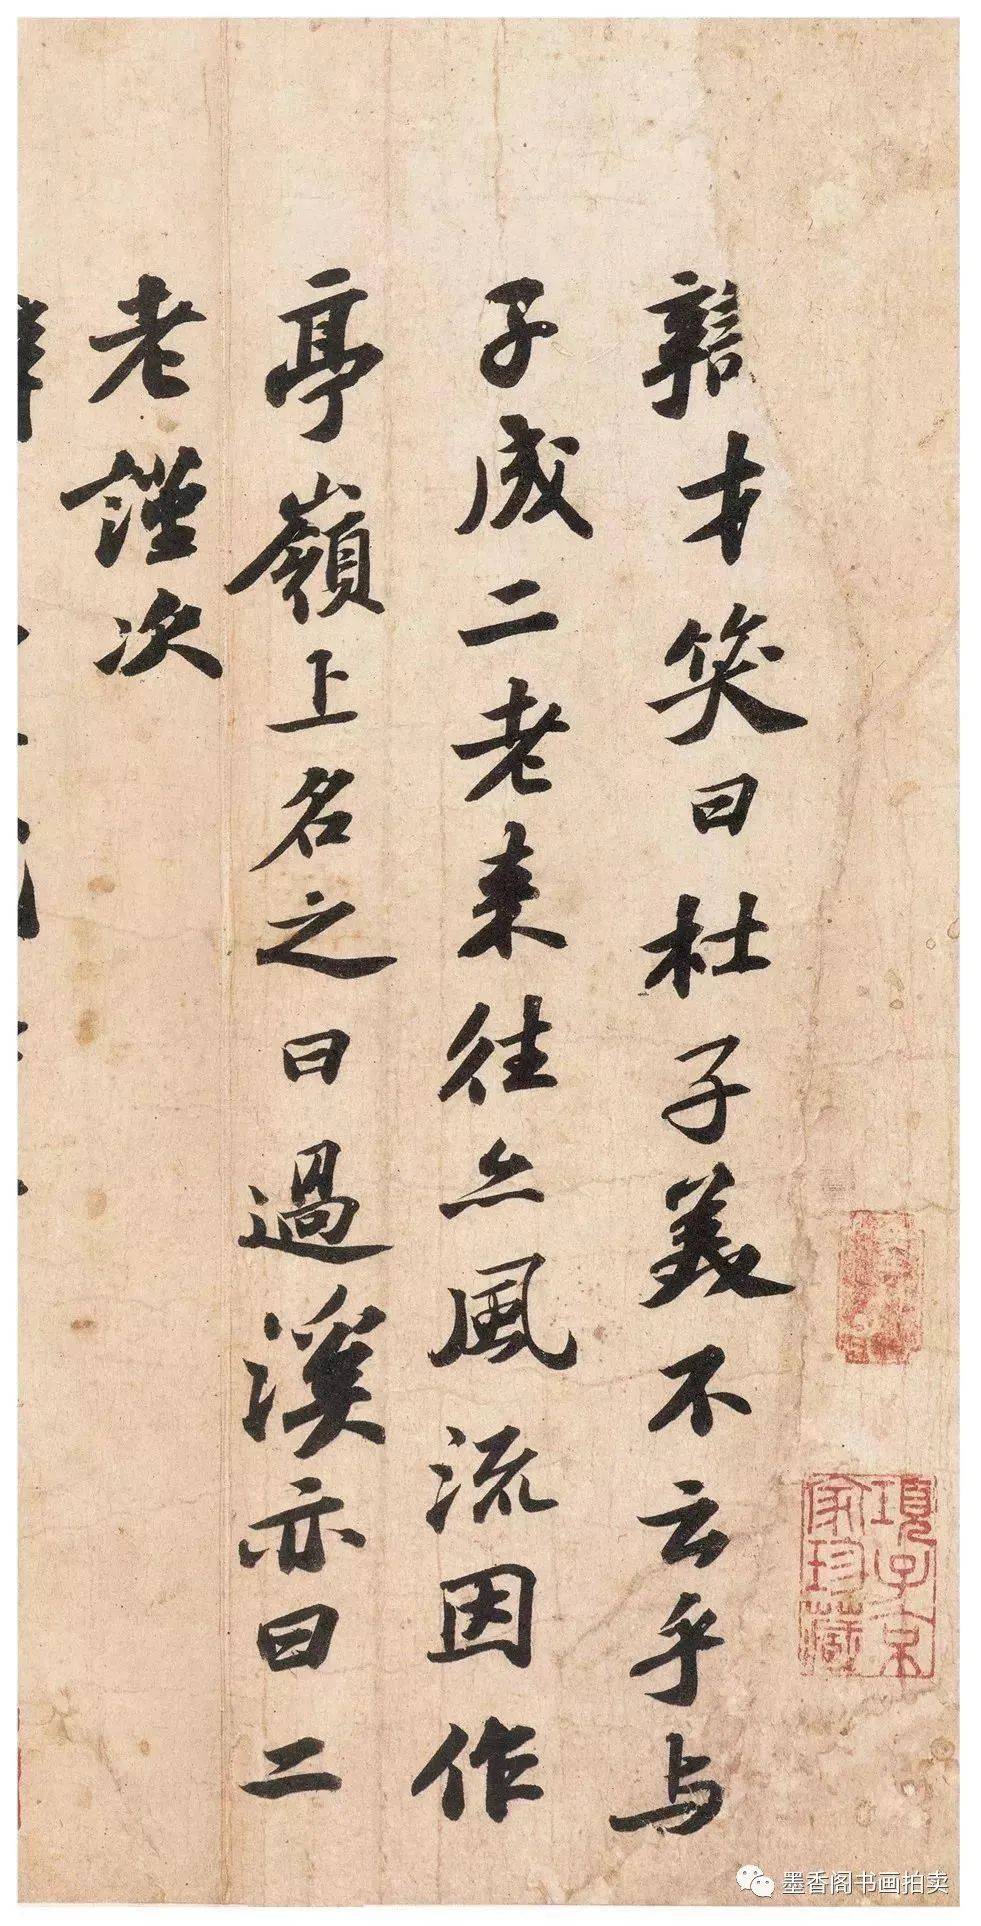 辯才笑曰杜子美不云乎与
子成二老来往亦風流因作
亭嶺上名之曰過溪亦曰二
老謹次
項子京
家珍藏
墨香阁书画拍卖